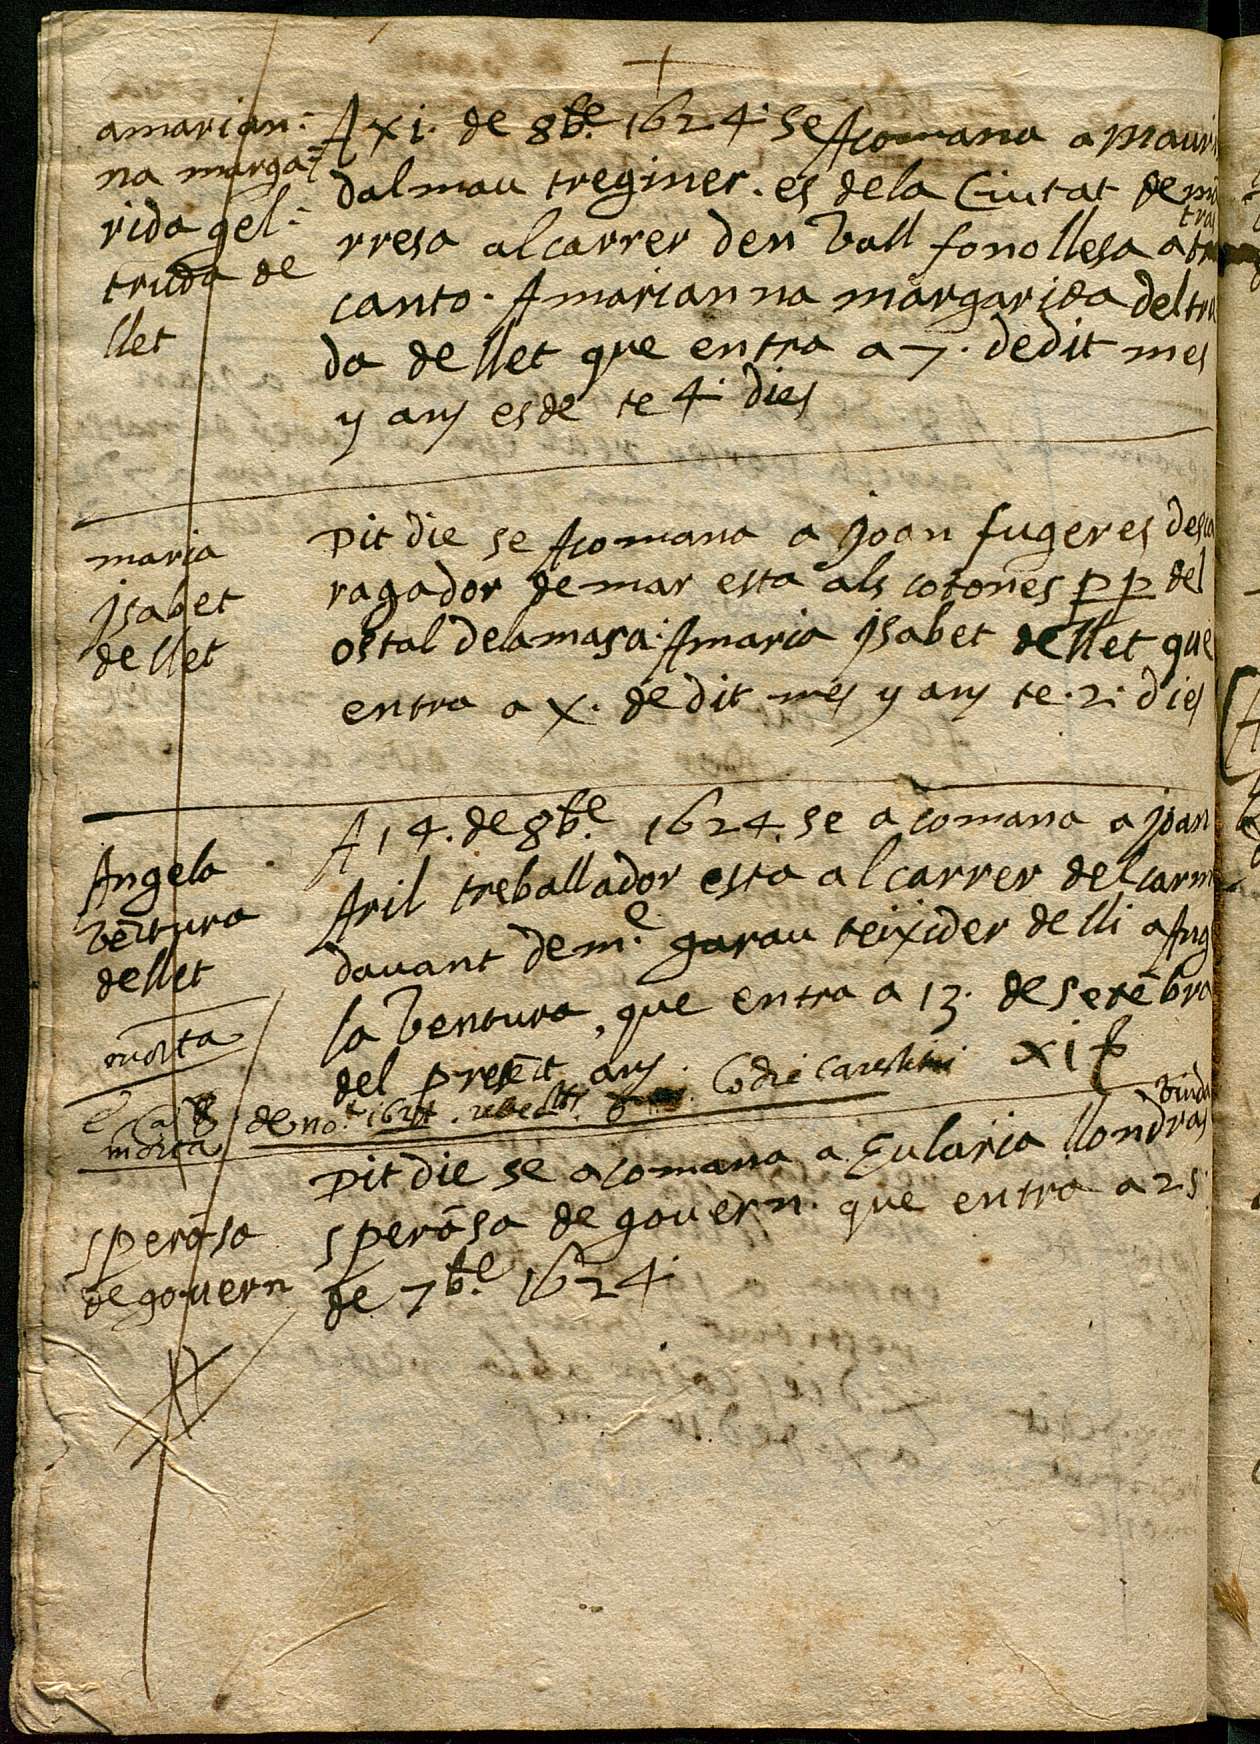 amarian:
na marga=
rida gel=
truda de
llet
A xi. de 8bᵉ. 1624. se Acomana a Mauri
dalmau treginer. es de la Ciutat de ma
rresa al carrer den Vall fonollesa a tras
canto. Amarianna margarida deltru
da de llet que entra a 7. de dit mes
y any es de te 4. dies
maria
jsabet
de llet
Dit die se Acomana a Joan fugeres desca
ragador de mar esta als cotoñes p p del
ostal de la masa. A maria jsabet de llet que
entra a x. de dit mes y any te. 2. dies
Angela
Vētura
de llet
morta
A 14. de 8bᵉ. 1624. se acomana a joan
Aril treballador esta al carrer del carm
dauant de mᵉ. garau teixider de lli a Ang
la Ventura, que entra a 13. de setēbra
del presēt any. xi ƀ
morta
a 8 de noᵉ. 1624.
Dit die se acomana a Eularia llondras Viuda
sperāsa
de govern
sperāsa de govern. que entra a 25
de 7bᵉ. 1624